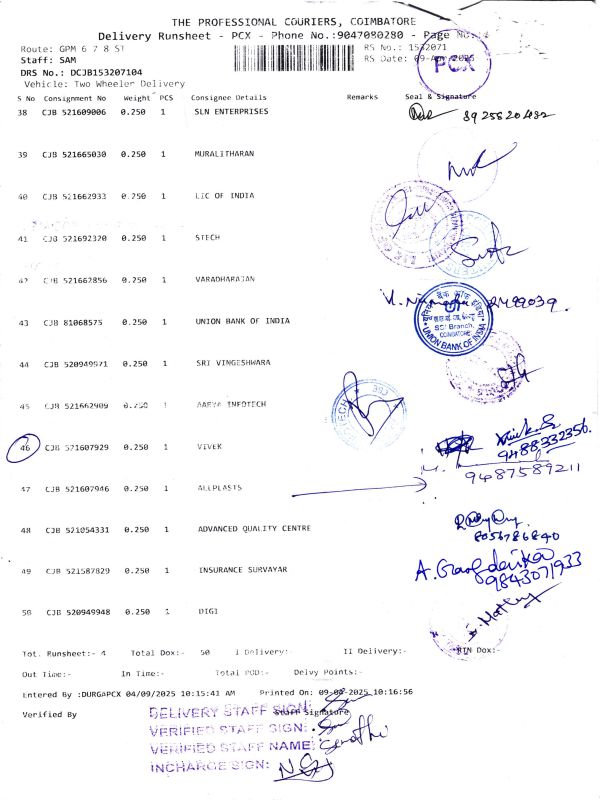 THE PROFESSIONAL COURIERS, COIMBATORE
Delivery Runsheet - PCX - Phone No.:9047080280 - Page No.:
Route: GPM 6 7 8 ST RS No.: 1532071
Staff: SAM RS Date: 09-Apr-2025
DRS No.: DCJB153207104
Vehicle: Two Wheeler Delivery
PCX
S No Consignment No Weight PCS Consignee Details Remarks Seal & Signature
38 CJB 521609006 0.250 1 SLN ENTERPRISES
39 CJB 521665030 0.250 1 MURALITHARAN
40 CJB 521662933 0.250 1 LIC OF INDIA
41 CJB 521692320 0.250 1 STECH
42 CJB 521662856 0.250 1 VARADHARAJAN
43 CJB 81068575 0.250 1 UNION BANK OF INDIA
यूनियन बैंक ऑफ इंडिया
SCI Branch,
COIMBATORE
UNION BANK OF INDIA
44 CJB 520949571 0.250 1 SRI VINGESHWARA
45 CJB 521662909 0.250 1 AARYA INFOTECH
46 CJB 521607929 0.250 1 VIVEK
9488332356.
9487589211
47 CJB 521607946 0.250 1 ALLPLASTS
48 CJB 521054331 0.250 1 ADVANCED QUALITY CENTRE
8056786840
49 CJB 521587829 0.250 1 INSURANCE SURVAYAR
9843071933
50 CJB 520949948 0.250 1 DIGI
Tot. Runsheet:- 4 Total Dox:- 50 I Delivery:- II Delivery:- Dox:-
Out Time:- In Time:- Total POD:- Delvy Points:-
Entered By :DURGAPCX 04/09/2025 10:15:41 AM Printed On: 09-04-2025 10:16:56
Verified By Staff Signature
DELIVERY STAFF SIGN:
VERIFIED STAFF SIGN:
VERIFIED STAFF NAME:
INCHARGE SIGN: